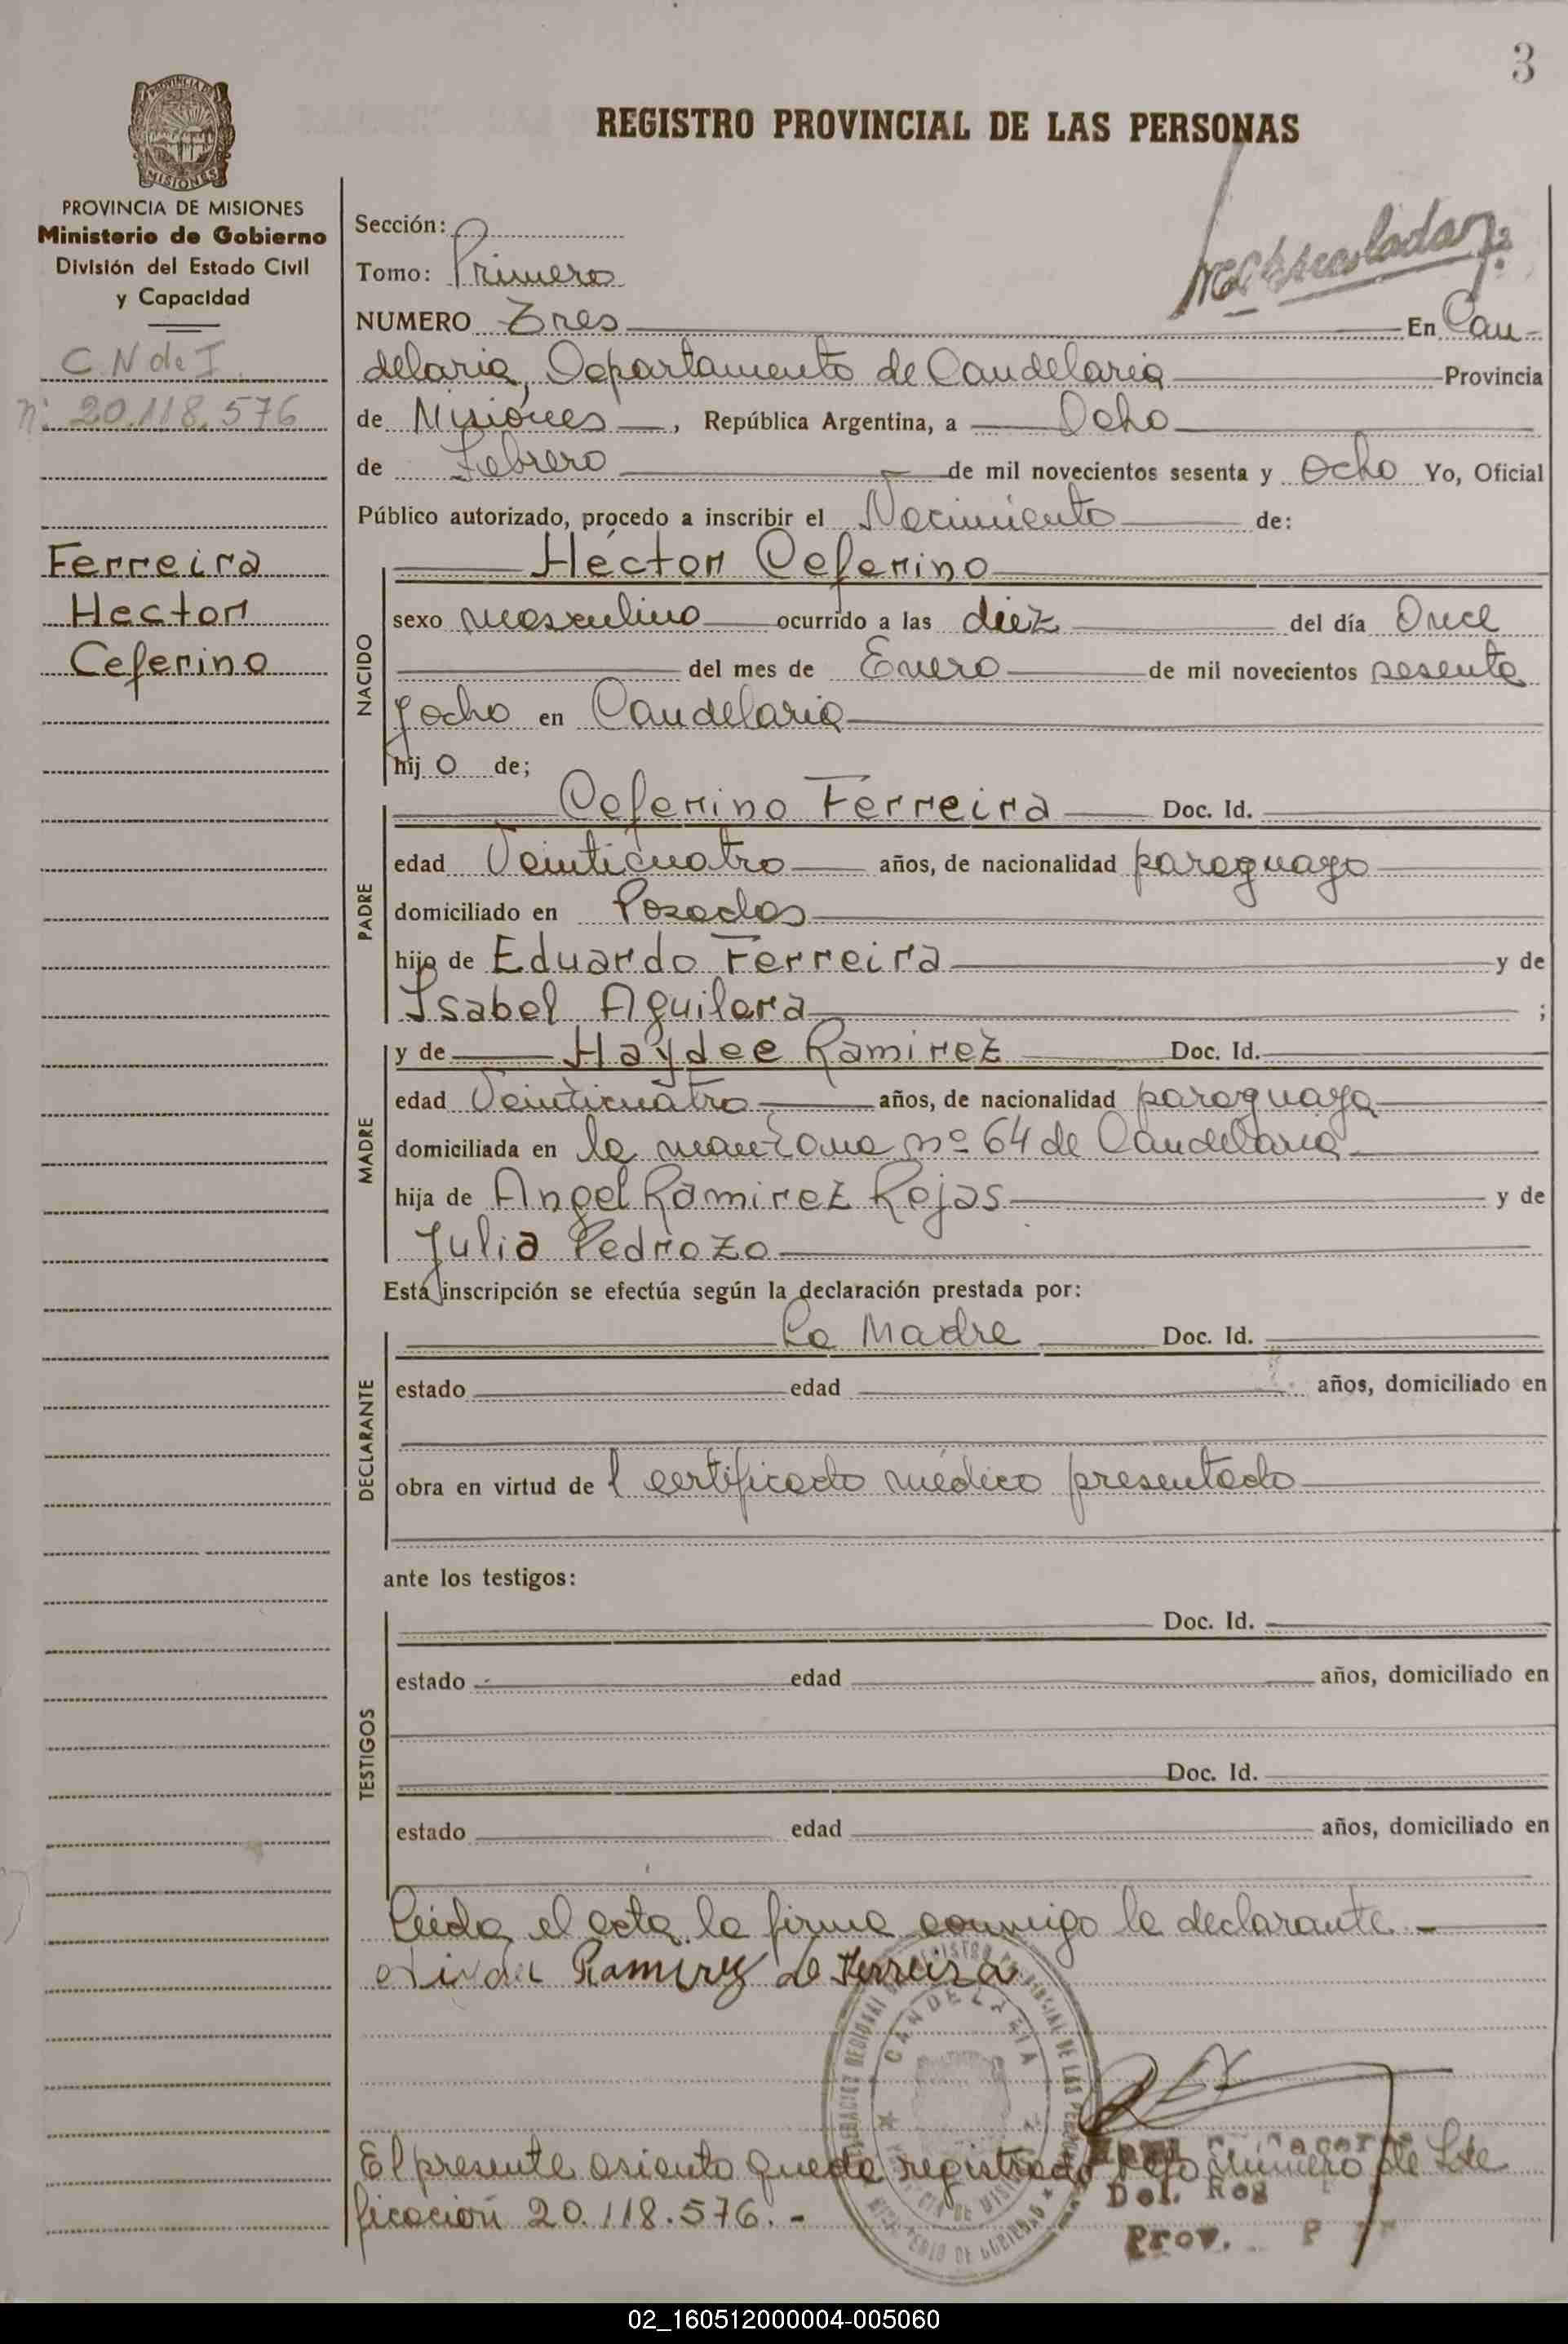 3
REGISTRO PROVINCIAL DE LAS PERSONAS
PROVINCIA DE MISIONES
Ministerio de Gobierno
División del Estado Civil
y Capacidad
C.N de I.
nº 20.118.576
Ferreira
Hector
Ceferino
Sección:
Tomo: Primero
NUMERO Tres En Can-
delaria, Departamento de Candelaria Provincia
de Misiones, República Argentina, a Ocho
de Febrero de mil novecientos sesenta y ocho Yo, Oficial
Público autorizado, procedo a inscribir el Nacimiento de:
NACIDO
Héctor Ceferino
sexo masculino ocurrido a las diez del día Once
del mes de Enero de mil novecientos sesenta
y ocho en Candelaria
hijo de;
PADRE
Ceferino Ferreira Doc. Id.
edad Veinticuatro años, de nacionalidad paraguayo
domiciliado en Posadas
hijo de Eduardo Ferreira y de
Isabel Aguilera ;
MADRE
y de Haydee Ramirez Doc. Id.
edad Veinticuatro años, de nacionalidad paraguaya
domiciliada en la manzana nº 64 de Candelaria
hija de Angel Ramirez Rojas y de
Julia Pedrozo
Esta inscripción se efectúa según la declaración prestada por:
DECLARANTE
La Madre Doc. Id.
estado edad años, domiciliado en
obra en virtud del certificado médico presentado
ante los testigos:
TESTIGOS
Doc. Id.
estado edad años, domiciliado en
Doc. Id.
estado edad años, domiciliado en
Leida el acta la firma conmigo la declarante.-
Ramirez de Ferreira
CANDELARIA
El presente asiento queda registrado bajo Número de Ide
ficación 20.118.576.-
Del. Reg
Prov.
02_160512000004-005060